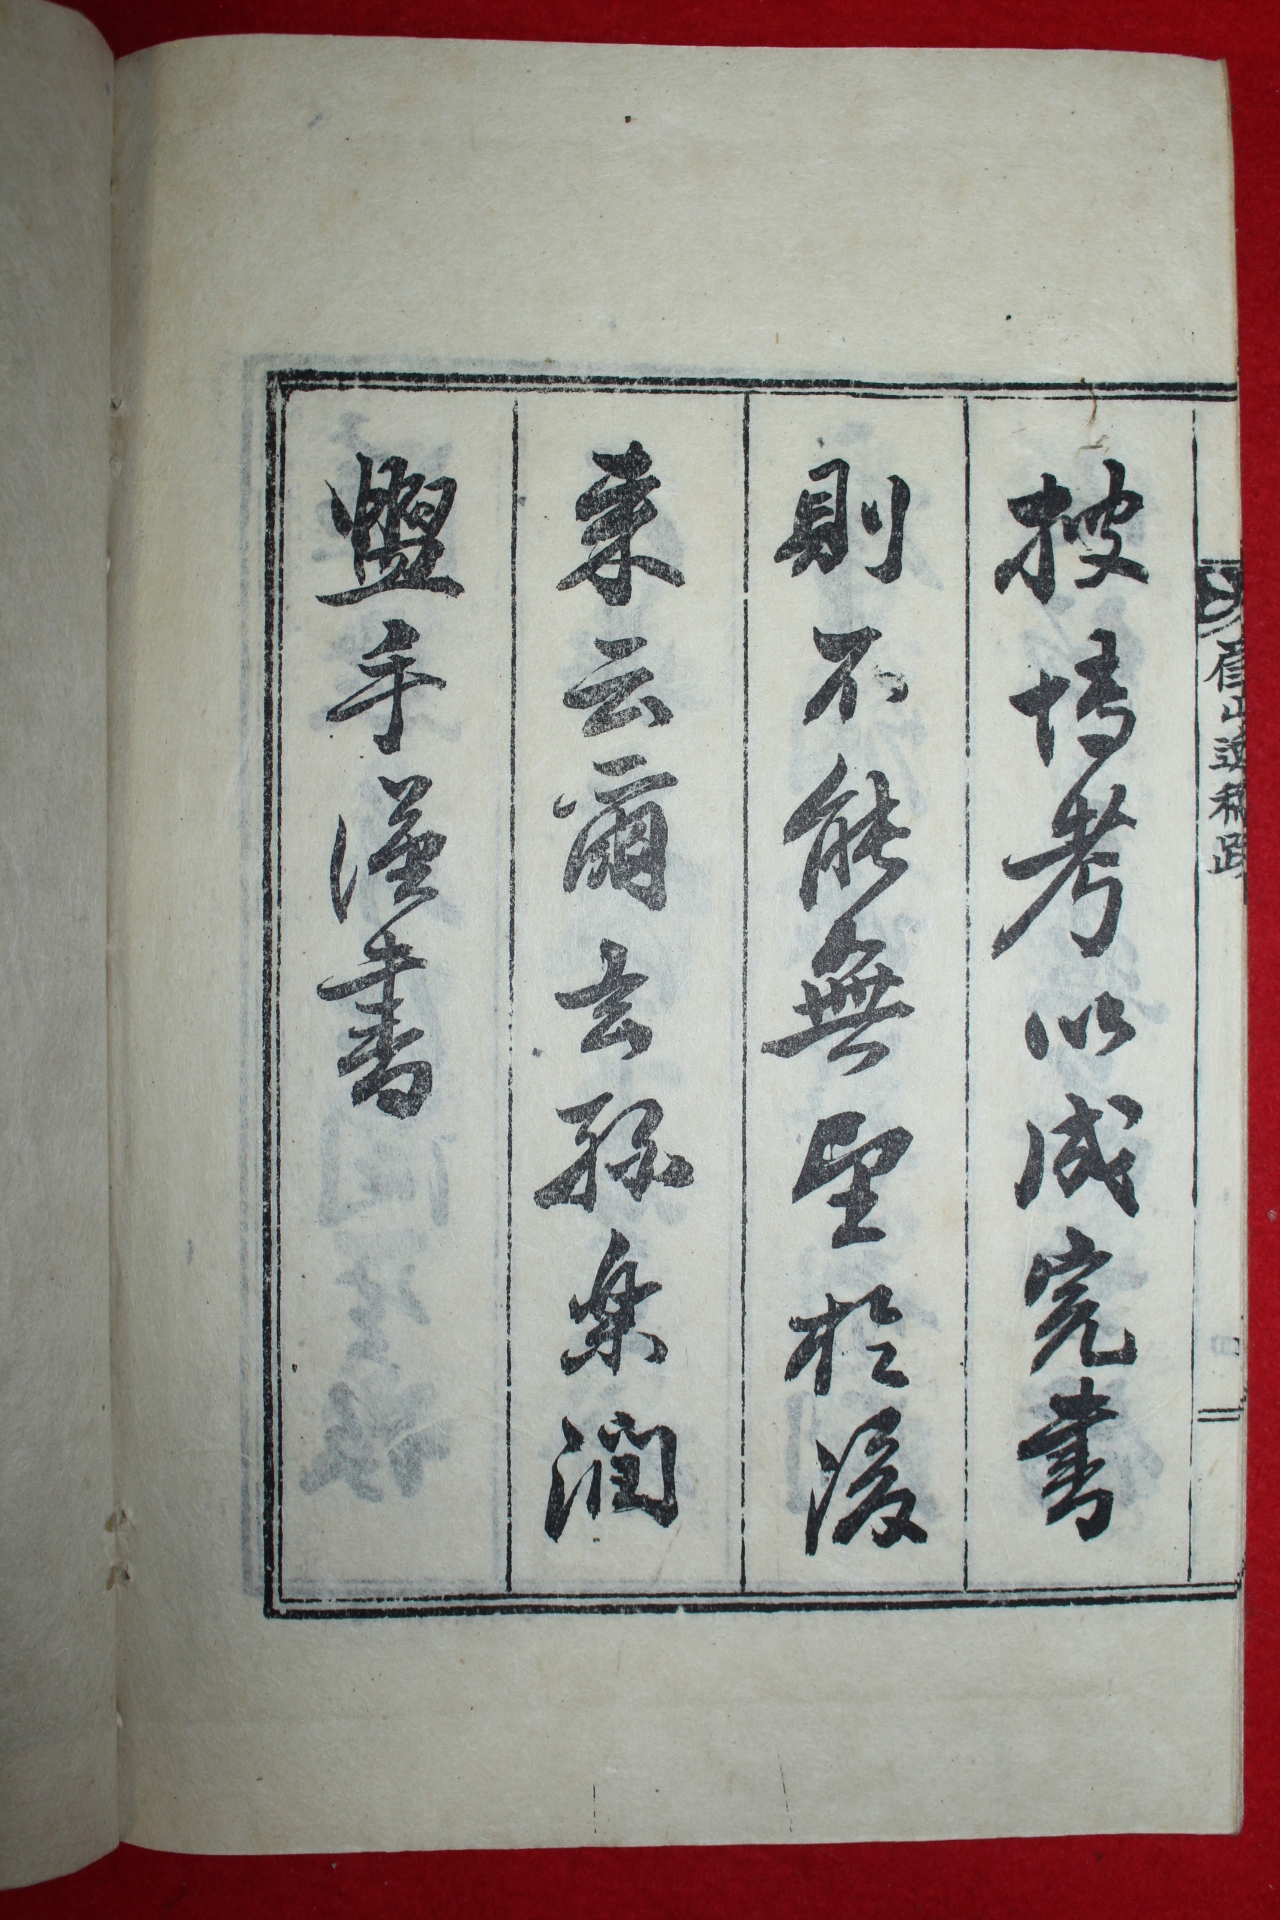 披博考以成完書
則不能無望於後
来云爾玄孫樂潤
盥手謹書
眉山逸稿跋